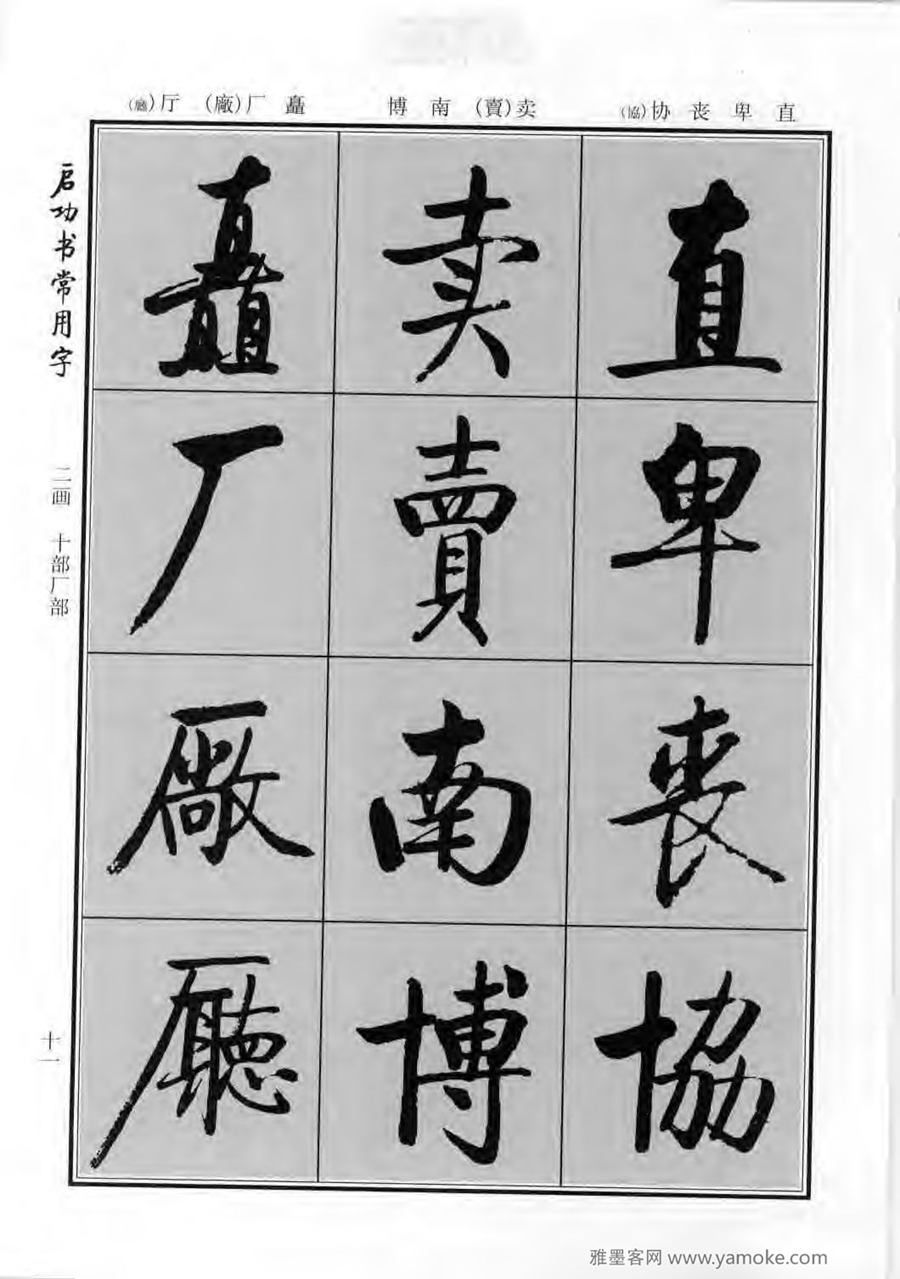 直 卑 丧 协(協)
卖(賣) 南 博
矗 厂(廠) 厅(廳)
启功书常用字
二画 十部厂部
十一
直
卑
丧
協
卖
賣
南
博
矗
厂
廠
廳
雅墨客网 www.yamoke.com